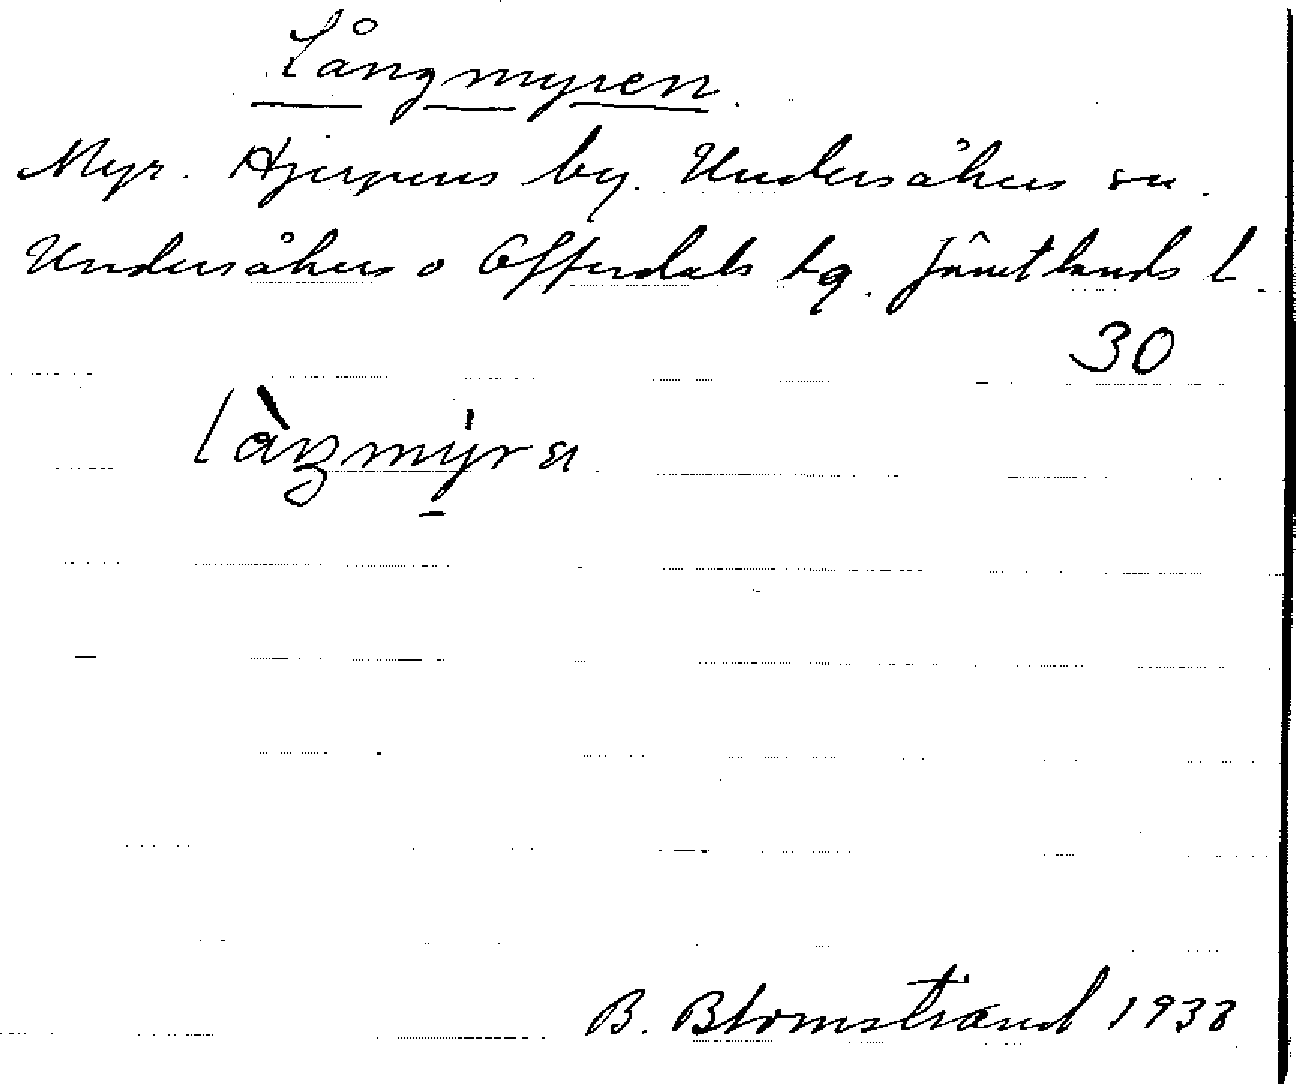 Långmyren.
Myr. Hjerpens by. Undersåkers sn.
Undersåkers o Offerdals tg. Jämtlands l
30
B. Blomstrand 1938